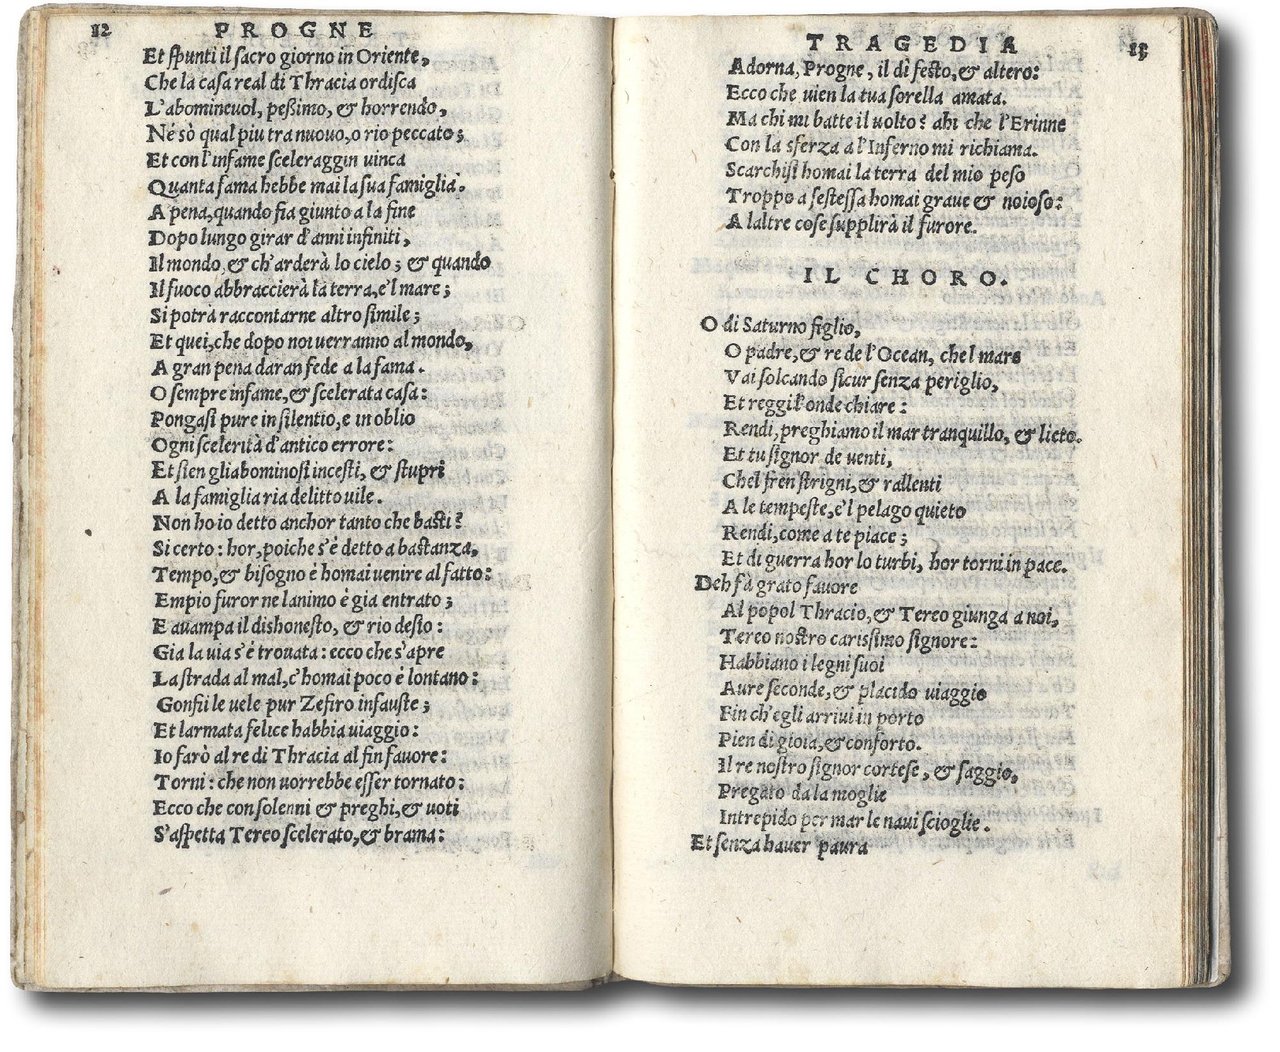 12 PROGNE
Et spunti il sacro giorno in Oriente,
Che la casa real di Thracia ordisca
L'abomineuol, peßimo, & horrendo,
Né sò qual piu tra nuouo, o rio peccato;
Et con l'infame sceleraggin uinca
Quanta fama hebbe mai la sua famiglia.
A pena, quando fia giunto a la fine
Dopo lungo girar d'anni infiniti,
Il mondo, & ch'arderà lo cielo; & quando
Il fuoco abbraccierà la terra, e'l mare;
Si potrà raccontarne altro simile;
Et quei, che dopo noi uerranno al mondo,
A gran pena daran fede a la fama.
O sempre infame, & scelerata casa:
Pongasi pure in silentio, e in oblio
Ogni scelerità d'antico errore:
Et sien gli abominosi incesti, & stupri
A la famiglia ria delitto uile.
Non ho io detto anchor tanto che basti?
Si certo: hor, poiche s'è detto a bastanza,
Tempo, & bisogno è homai uenire al fatto:
Empio furor ne lanimo è gia entrato;
E auampa il dishonesto, & rio desio:
Gia la uia s'é trouata: ecco che s'apre
La strada al mal, c'homai poco è lontano:
Gonfii le uele pur Zefiro infauste;
Et larmata felice habbia uiaggio:
Io farò al re di Thracia al fin fauore:
Torni: che non uorrebbe esser tornato:
Ecco che con solenni & preghi, & uoti
S'aspetta Tereo scelerato, & brama:
TRAGEDIA 13
Adorna, Progne, il dì festo, & altero:
Ecco che uien la tua sorella amata.
Ma chi mi batte il uolto? ahi che l'Erinne
Con la sferza a l'Inferno mi richiama.
Scarchisi homai la terra del mio peso
Troppo a se stessa homai graue & noioso:
A laltre cose supplirà il furore.
IL CHORO.
O di Saturno figlio,
O padre, & re de l'Ocean, che l mare
Vai solcando sicur senza periglio,
Et reggi l'onde chiare:
Rendi, preghiamo il mar tranquillo, & lieto.
Et tu signor de uenti,
Che l fren strigni, & rallenti
A le tempeste, e'l pelago quieto
Rendi, come a te piace;
Et di guerra hor lo turbi, hor torni in pace.
Deh fà grato fauore
Al popol Thracio, & Tereo giunga a noi,
Tereo nostro carissimo signore:
Habbiano i legni suoi
Aure seconde, & placido uiaggio
Fin ch'egli arriui in porto
Pien di gioia, & conforto.
Il re nostro signor cortese, & saggio,
Pregato da la moglie
Intrepido per mar le naui scioglie.
Et senza hauer paura